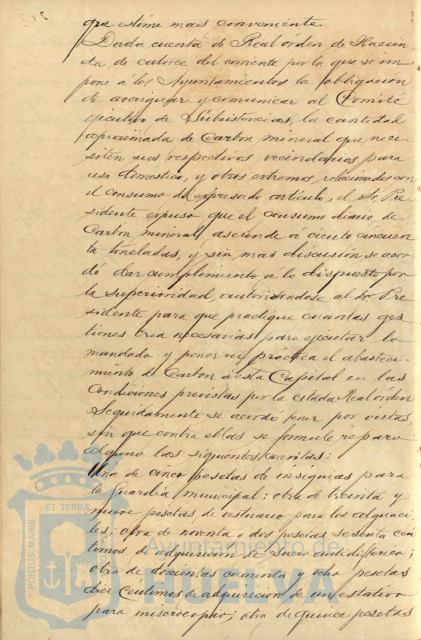 que estime mas conveniente.
Dada cuenta de Real orden de Hacien
da de catorce del corriente por la que se im
pone á los Ayuntamientos la obligacion
de averiguar y comunicar al Comité
ejecutivo de Subsistencias, la cantidad
aproximada de Carbon mineral que nece
siten sus respectivos vecindarios para
uso domestico, y otros extremos relacionados con
el consumo del expresado articulo, el Sr. Pre
sidente expuso que el consumo diario de
Carbon mineral, asciende á ciento cincuen
ta toneladas, y sin mas discusión se acor
dó dar cumplimiento a lo dispuesto por
la superioridad, autorizandose al Sr. Pre
sidente para que practique cuantas ges
tiones crea necesarias para ejecutar lo
mandado y poner en práctica el abasteci
miento de Carbon á esta Capital en las
condiciones previstas por la citada Real orden
Seguidamente se acordó tener por vistas,
sin que contra ellas se formule reparo
alguno las siguientes cuentas:
Una de cinco pesetas de insignias para
la Guardia municipal: otra de treinta y
nueve pesetas de vestuario para los alguaci
les; otra de noventa y dos pesetas sesenta cén
timos de adquisicion de suero antidifterico;
otra de doscientas cuarenta y ocho pesetas
diez centimos de adquisicion de un estativo
para microscopio; otra de quince pesetas
PORTUS MARIS
ET TERRAE
Ayuntamiento de
HUELVA